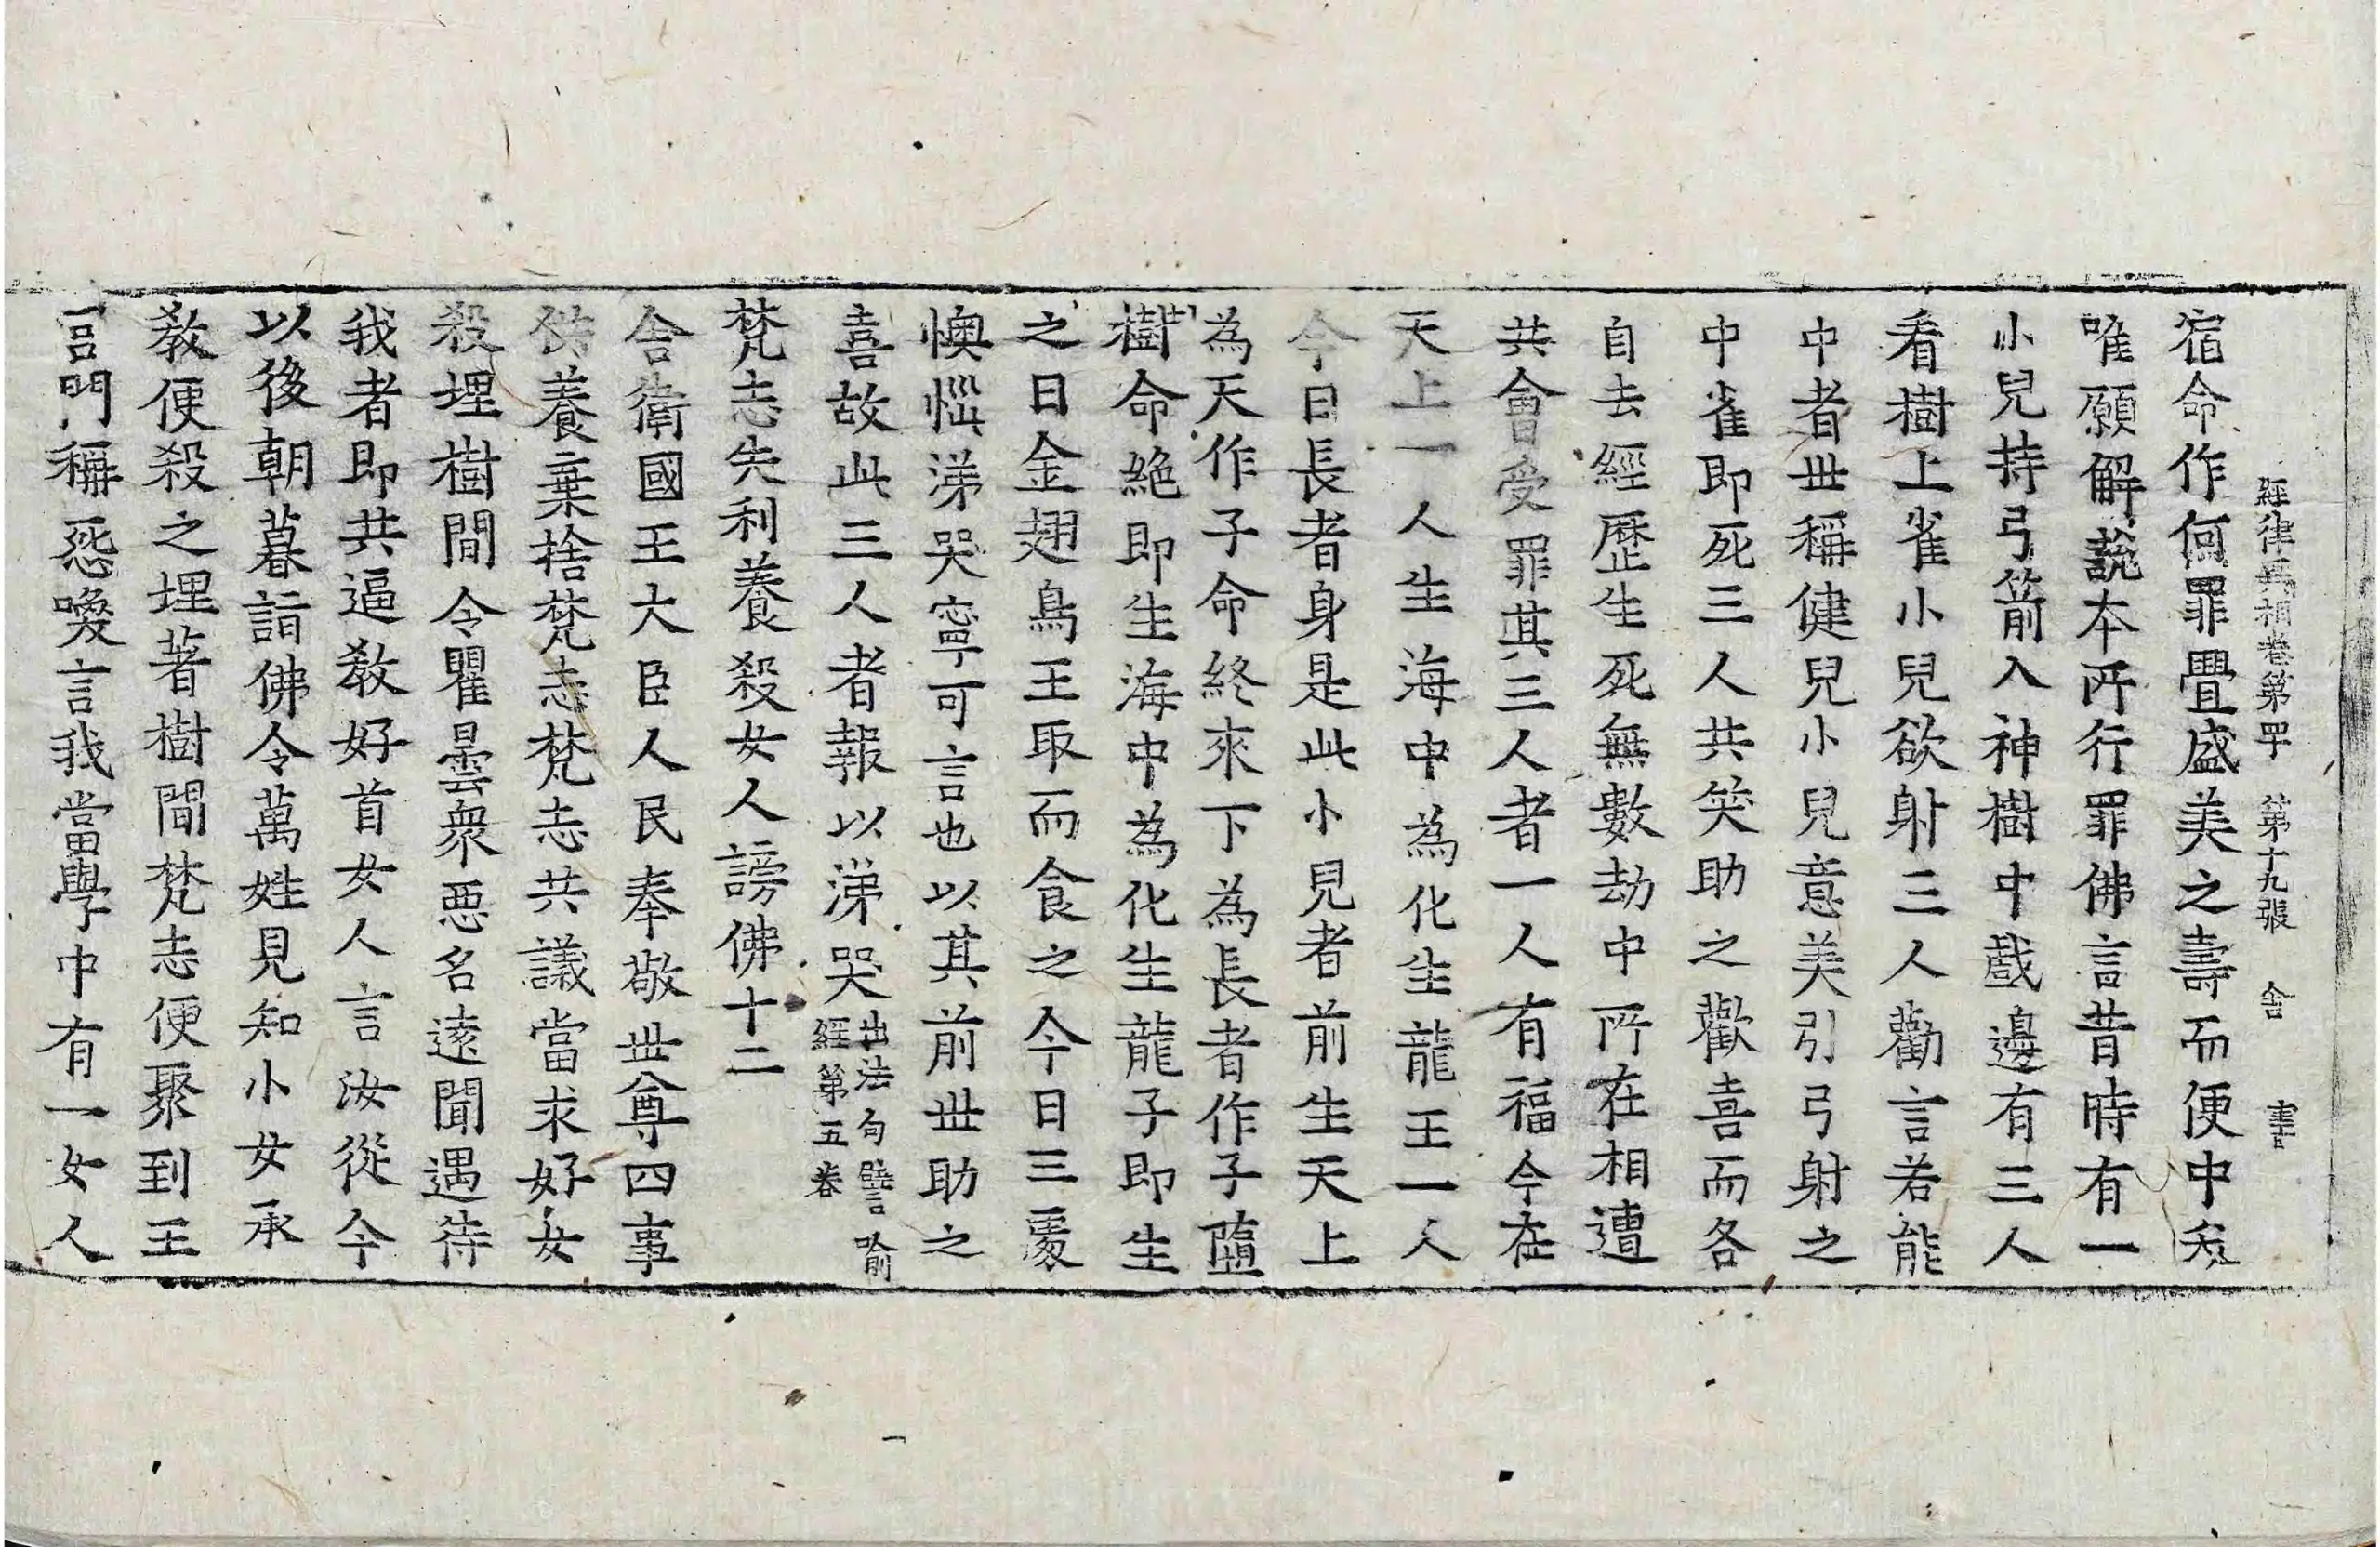 經律異相卷第四十 第十九張 舍
宿命作何罪舋盛美之壽而便中夭
唯願解說本所行罪佛言昔時有一
小兒持弓箭入神樹中戲邊有三人
看樹上雀小兒欲射三人勸言若能
中者世稱健兒小兒意美引弓射之
中雀即死三人共笑助之歡喜而各
自去經歷生死無數劫中所在相遭
共會受罪其三人者一人有福今在
天上一人生海中為化生龍王一人
今日長者身是此小兒者前生天上
為天作子命終來下為長者作子墮
樹命絕即生海中為化生龍子即生
之日金翅鳥王取而食之今日三處
懊惱涕哭寧可言也以其前世助之
喜故此三人者報以涕哭出法句譬喻
經第五卷
梵志失利養殺女人謗佛十二
舍衛國王大臣人民奉敬世尊四事
供養棄捨梵志梵志共議當求好女
殺埋樹間令瞿曇眾惡名遠聞遇待
我者即共逼教好首女人言汝從今
以後朝暮詣佛令萬姓見知小女承
教便殺之埋著樹間梵志便聚到王
宮門稱怨喚言我當學中有一女人